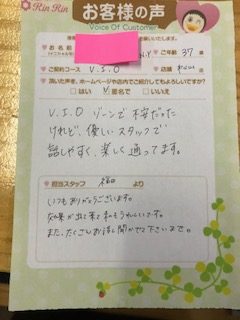 Rin Rin
お客様の声
Voice Of Customer
お名前 N.Y ご年齢 37 歳
ご契約コース V.I.O 店舗
頂いた声を、ホームページや店内でご紹介してもよろしいですか?
はい ✓匿名で いいえ
V.I.O ゾーンで不安だった
けれど、優しいスタッフで
話しやすく、楽しく通ってます。
担当スタッフ 福田 より
いつもありがとうございます。
効果が出て来て私もうれしいです。
また、たくさんお話し聞かせて下さいませ。